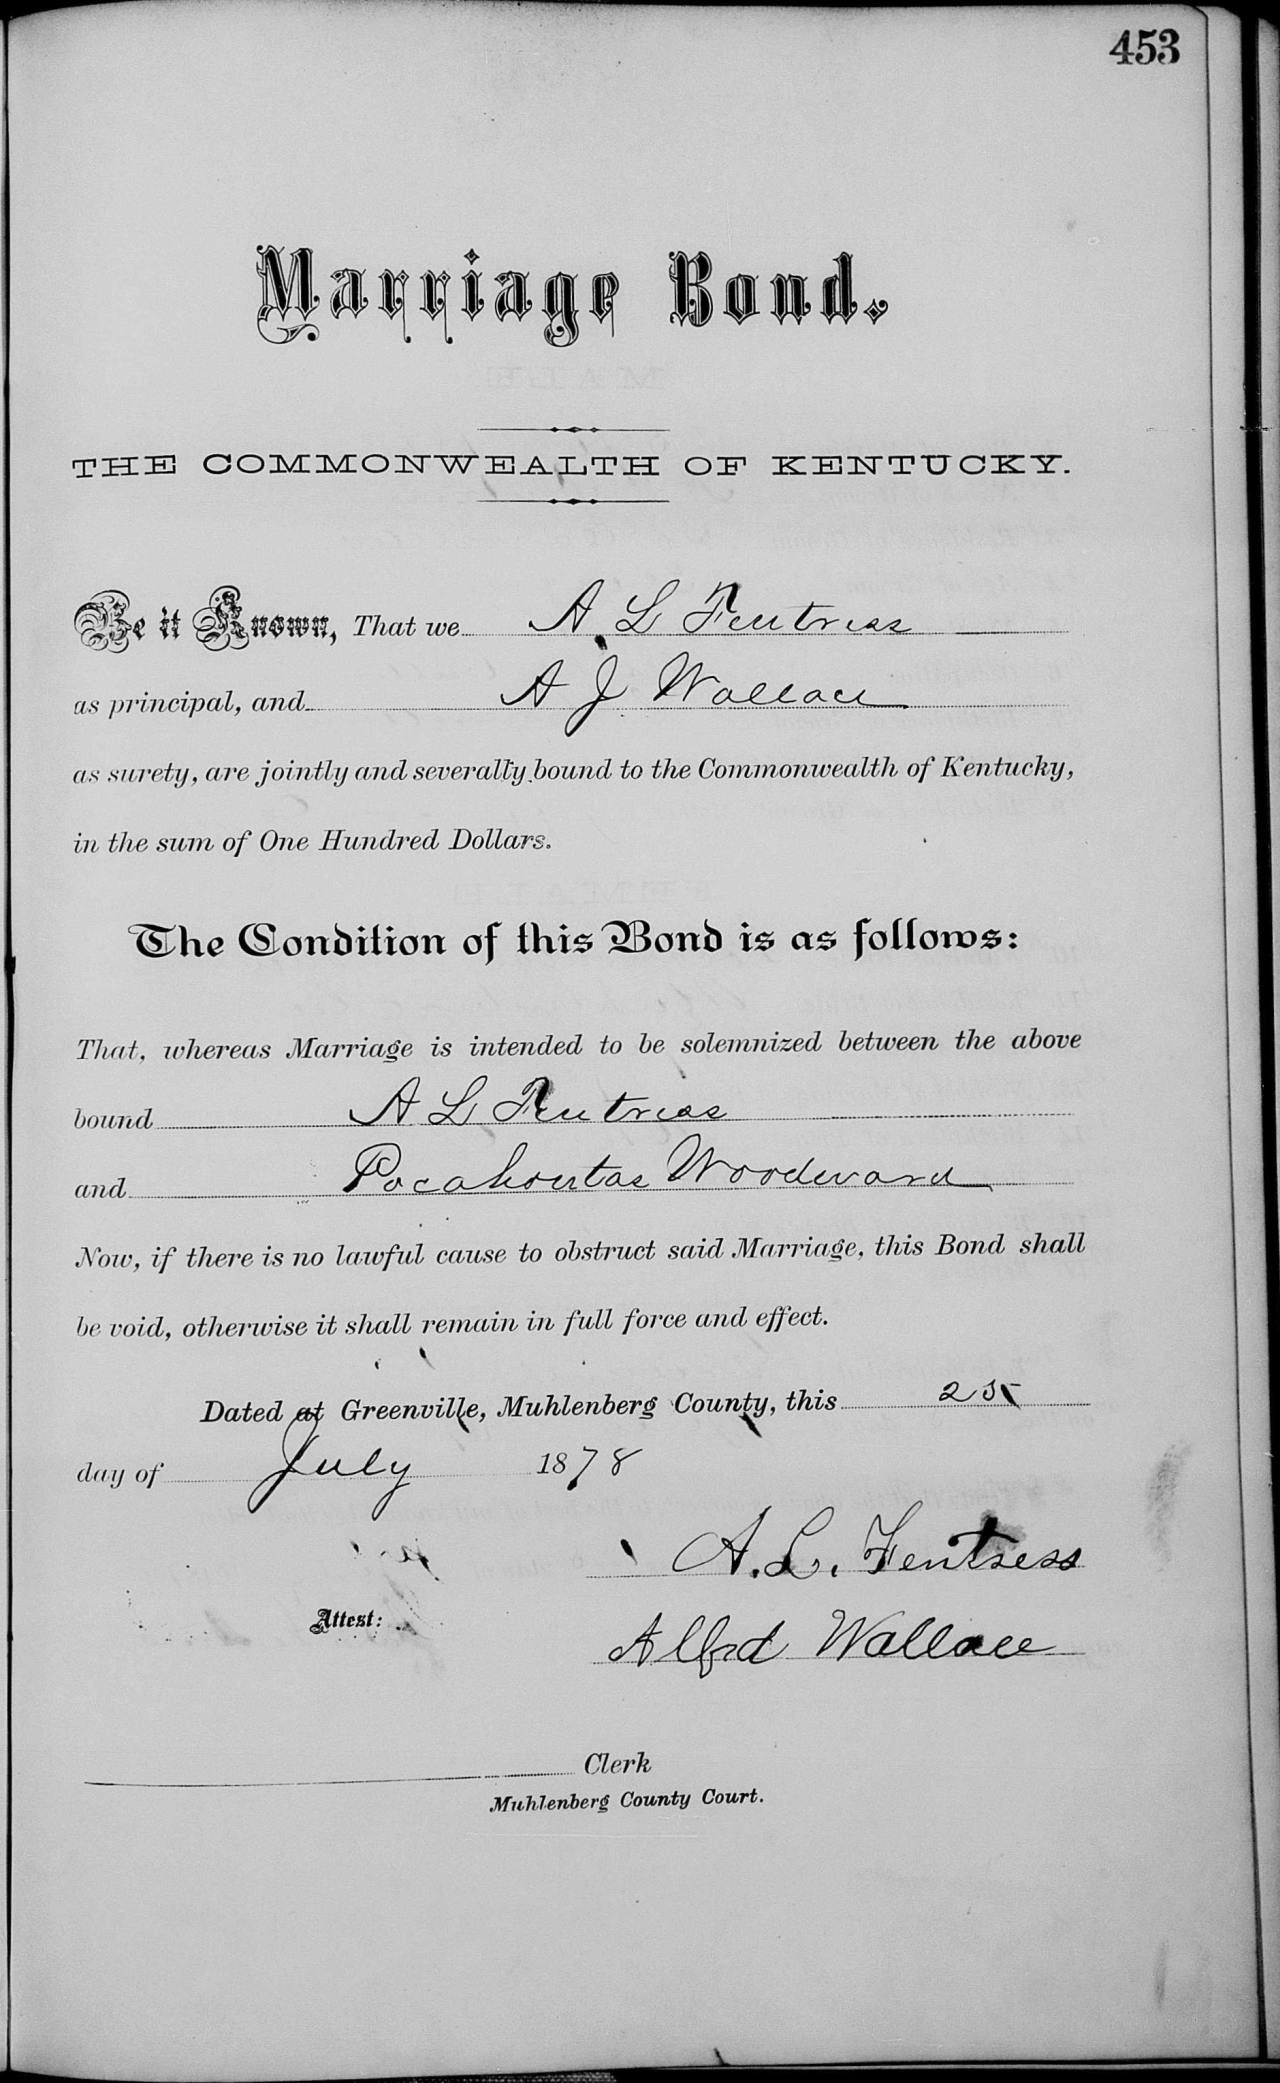 453
Marriage Bond.
THE COMMONWEALTH OF KENTUCKY.
Be it Known, That we A L Fentress
as principal, and A J Wallace
as surety, are jointly and severally bound to the Commonwealth of Kentucky,
in the sum of One Hundred Dollars.
The Condition of this Bond is as follows:
That, whereas Marriage is intended to be solemnized between the above
bound A L Fentress
and Pocahontas Woodward
Now, if there is no lawful cause to obstruct said Marriage, this Bond shall
be void, otherwise it shall remain in full force and effect.
Dated at Greenville, Muhlenberg County, this 25
day of July 1878
A. L. Fentress
Attest:
Alfrd Wallace
Clerk
Muhlenberg County Court.